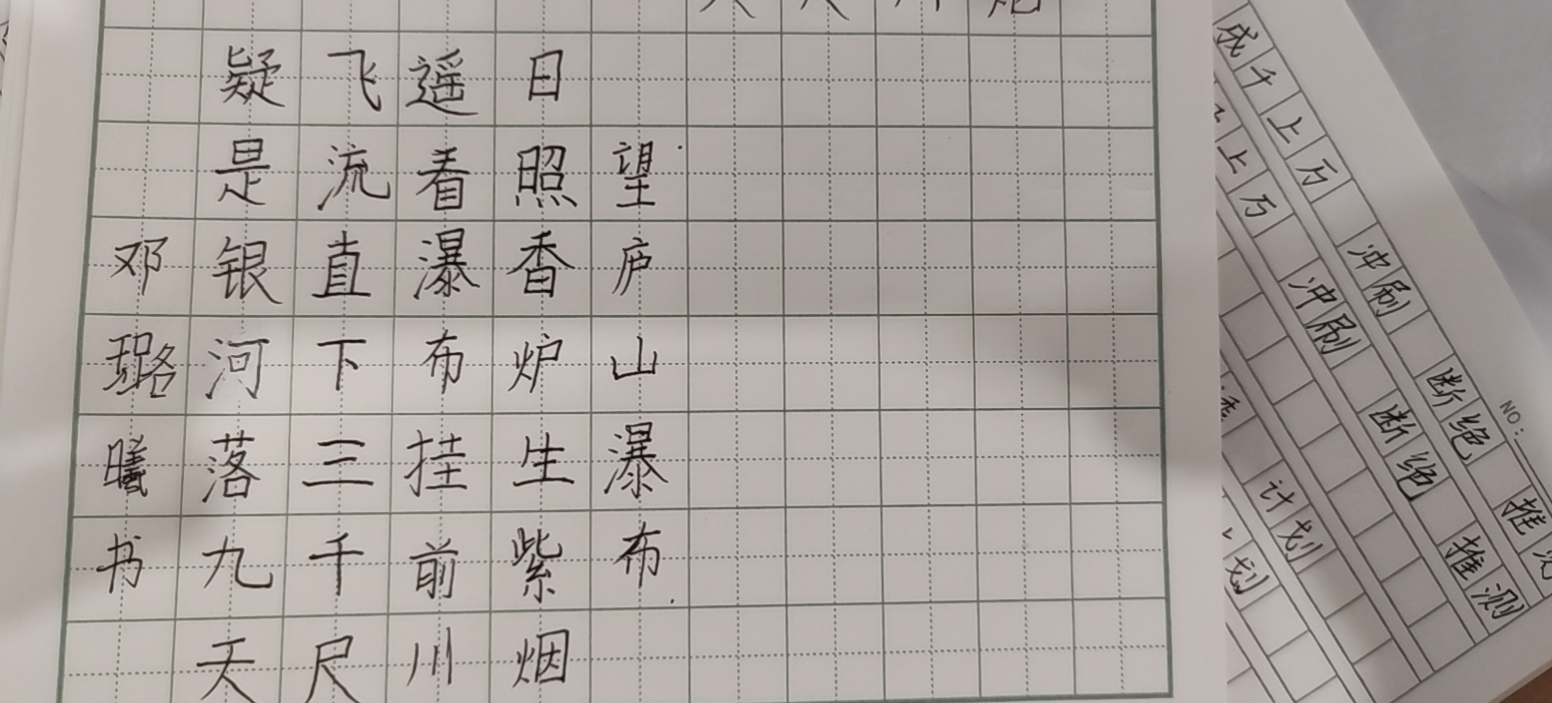 望庐山瀑布
日照香炉生紫烟
遥看瀑布挂前川
飞流直下三千尺
疑是银河落九天
邓璐曦书
推
断绝
冲刷
成千上万
推测
断绝
冲刷
上万
计划
划
NO: